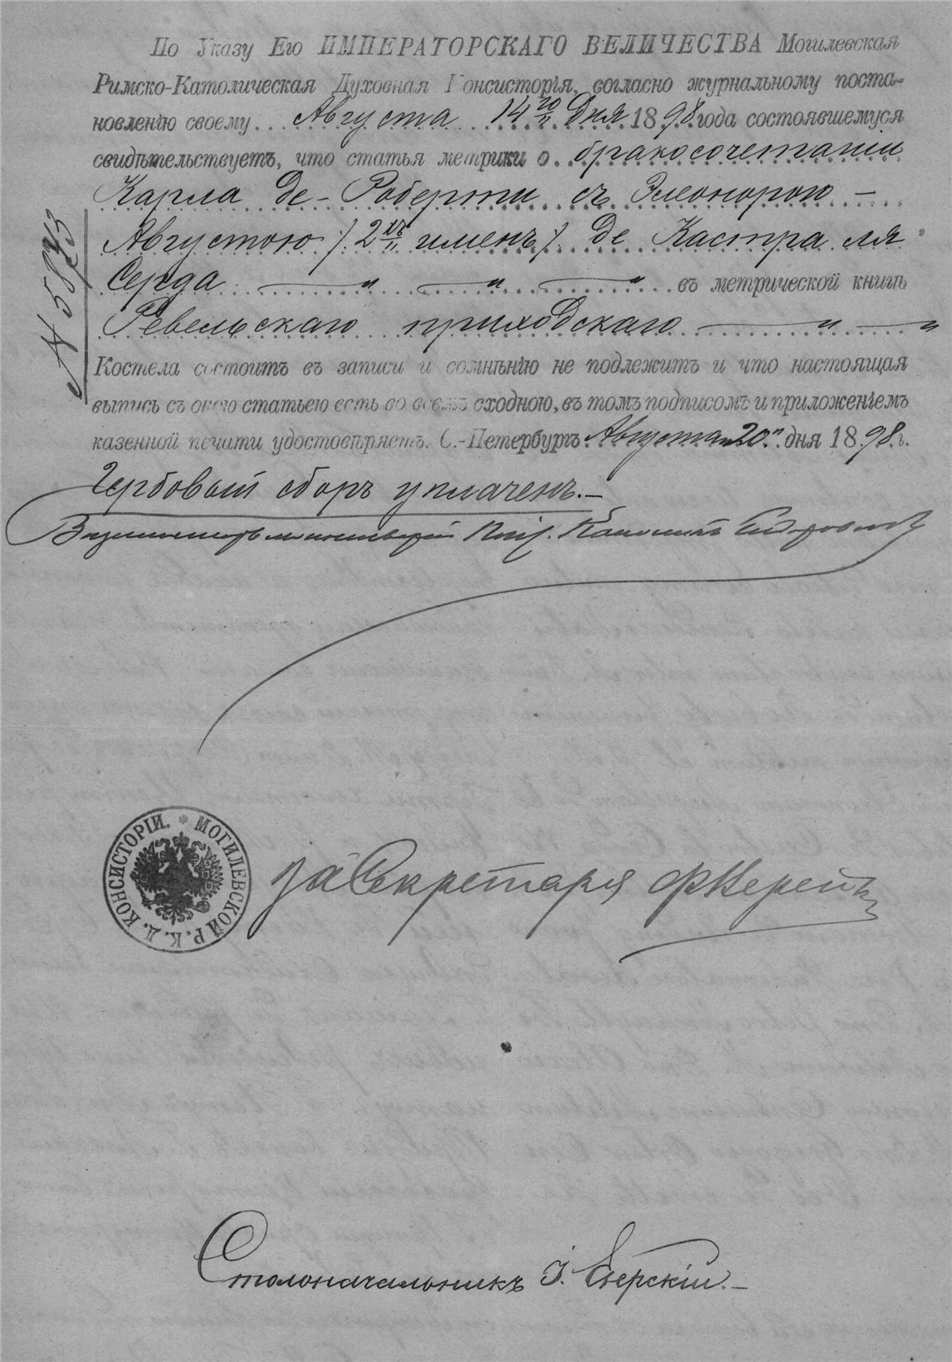 По Указу Его ИМПЕРАТОРСКАГО ВЕЛИЧЕСТВА Могилевская
Римско-Католическая Духовная Консисторія, согласно журнальному поста-
новленію своему Августа 14го дня 1898 года состоявшемуся
свидѣтельствуетъ, что статья метрики о бракосочетаніи
Карла де-Роберти съ Элеонорою-
Августою /2хъ именъ/ де Кастра ля
Серда въ метрической книгѣ
Ревельскаго приходскаго
Костела состоитъ въ записи и сомнѣнію не подлежитъ и что настоящая
выпись съ оною статьею есть во всемъ сходною, въ томъ подписомъ и приложеніемъ
казенной печати удостовѣряетъ. С.-Петербургъ Августа "20" дня 1898 г.
Гербовый сборъ уплаченъ.-
Каноникъ
№ 5873
* МОГИЛЕВСКОЙ Р. К. Д. КОНСИСТОРІИ.
За Секретаря
Столоначальникъ І. Езерскій.-